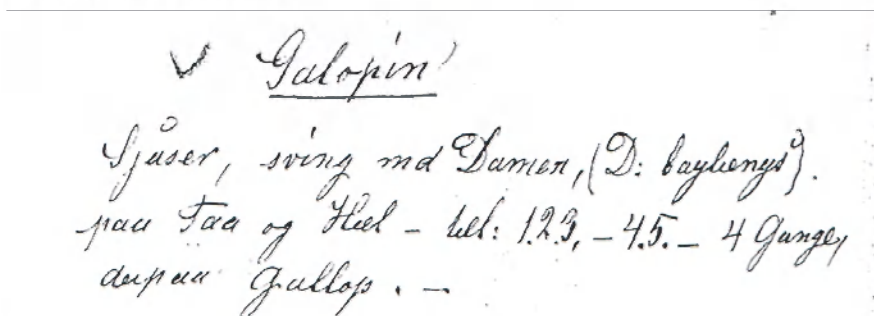 Galopin
Sjåser, sving md Damen, (D: baglengs).
paa Taa og Hæl - tæl: 1.2.3, - 4.5. - 4 Gange,
derpaa Gallop. -